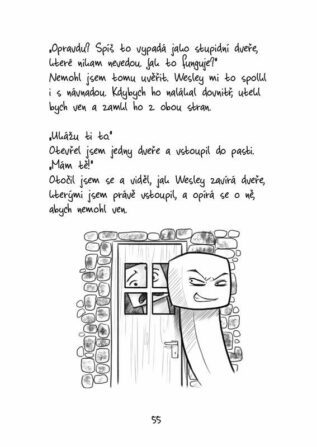 „Opravdu? Spíš to vypadá jako stupidní dveře,
které nikam nevedou. Jak to funguje?"
Nemohl jsem tomu uvěřit. Wesley mi to spolkl
i s návnadou. Kdybych ho nalákal dovnitř, utekl
bych ven a zamkl ho z obou stran.

„Ukážu ti to."
Otevřel jsem jedny dveře a vstoupil do pasti.
„Mám tě!"
Otočil jsem se a viděl, jak Wesley zavírá dveře,
kterými jsem právě vstoupil, a opírá se o ně,
abych nemohl ven.

55